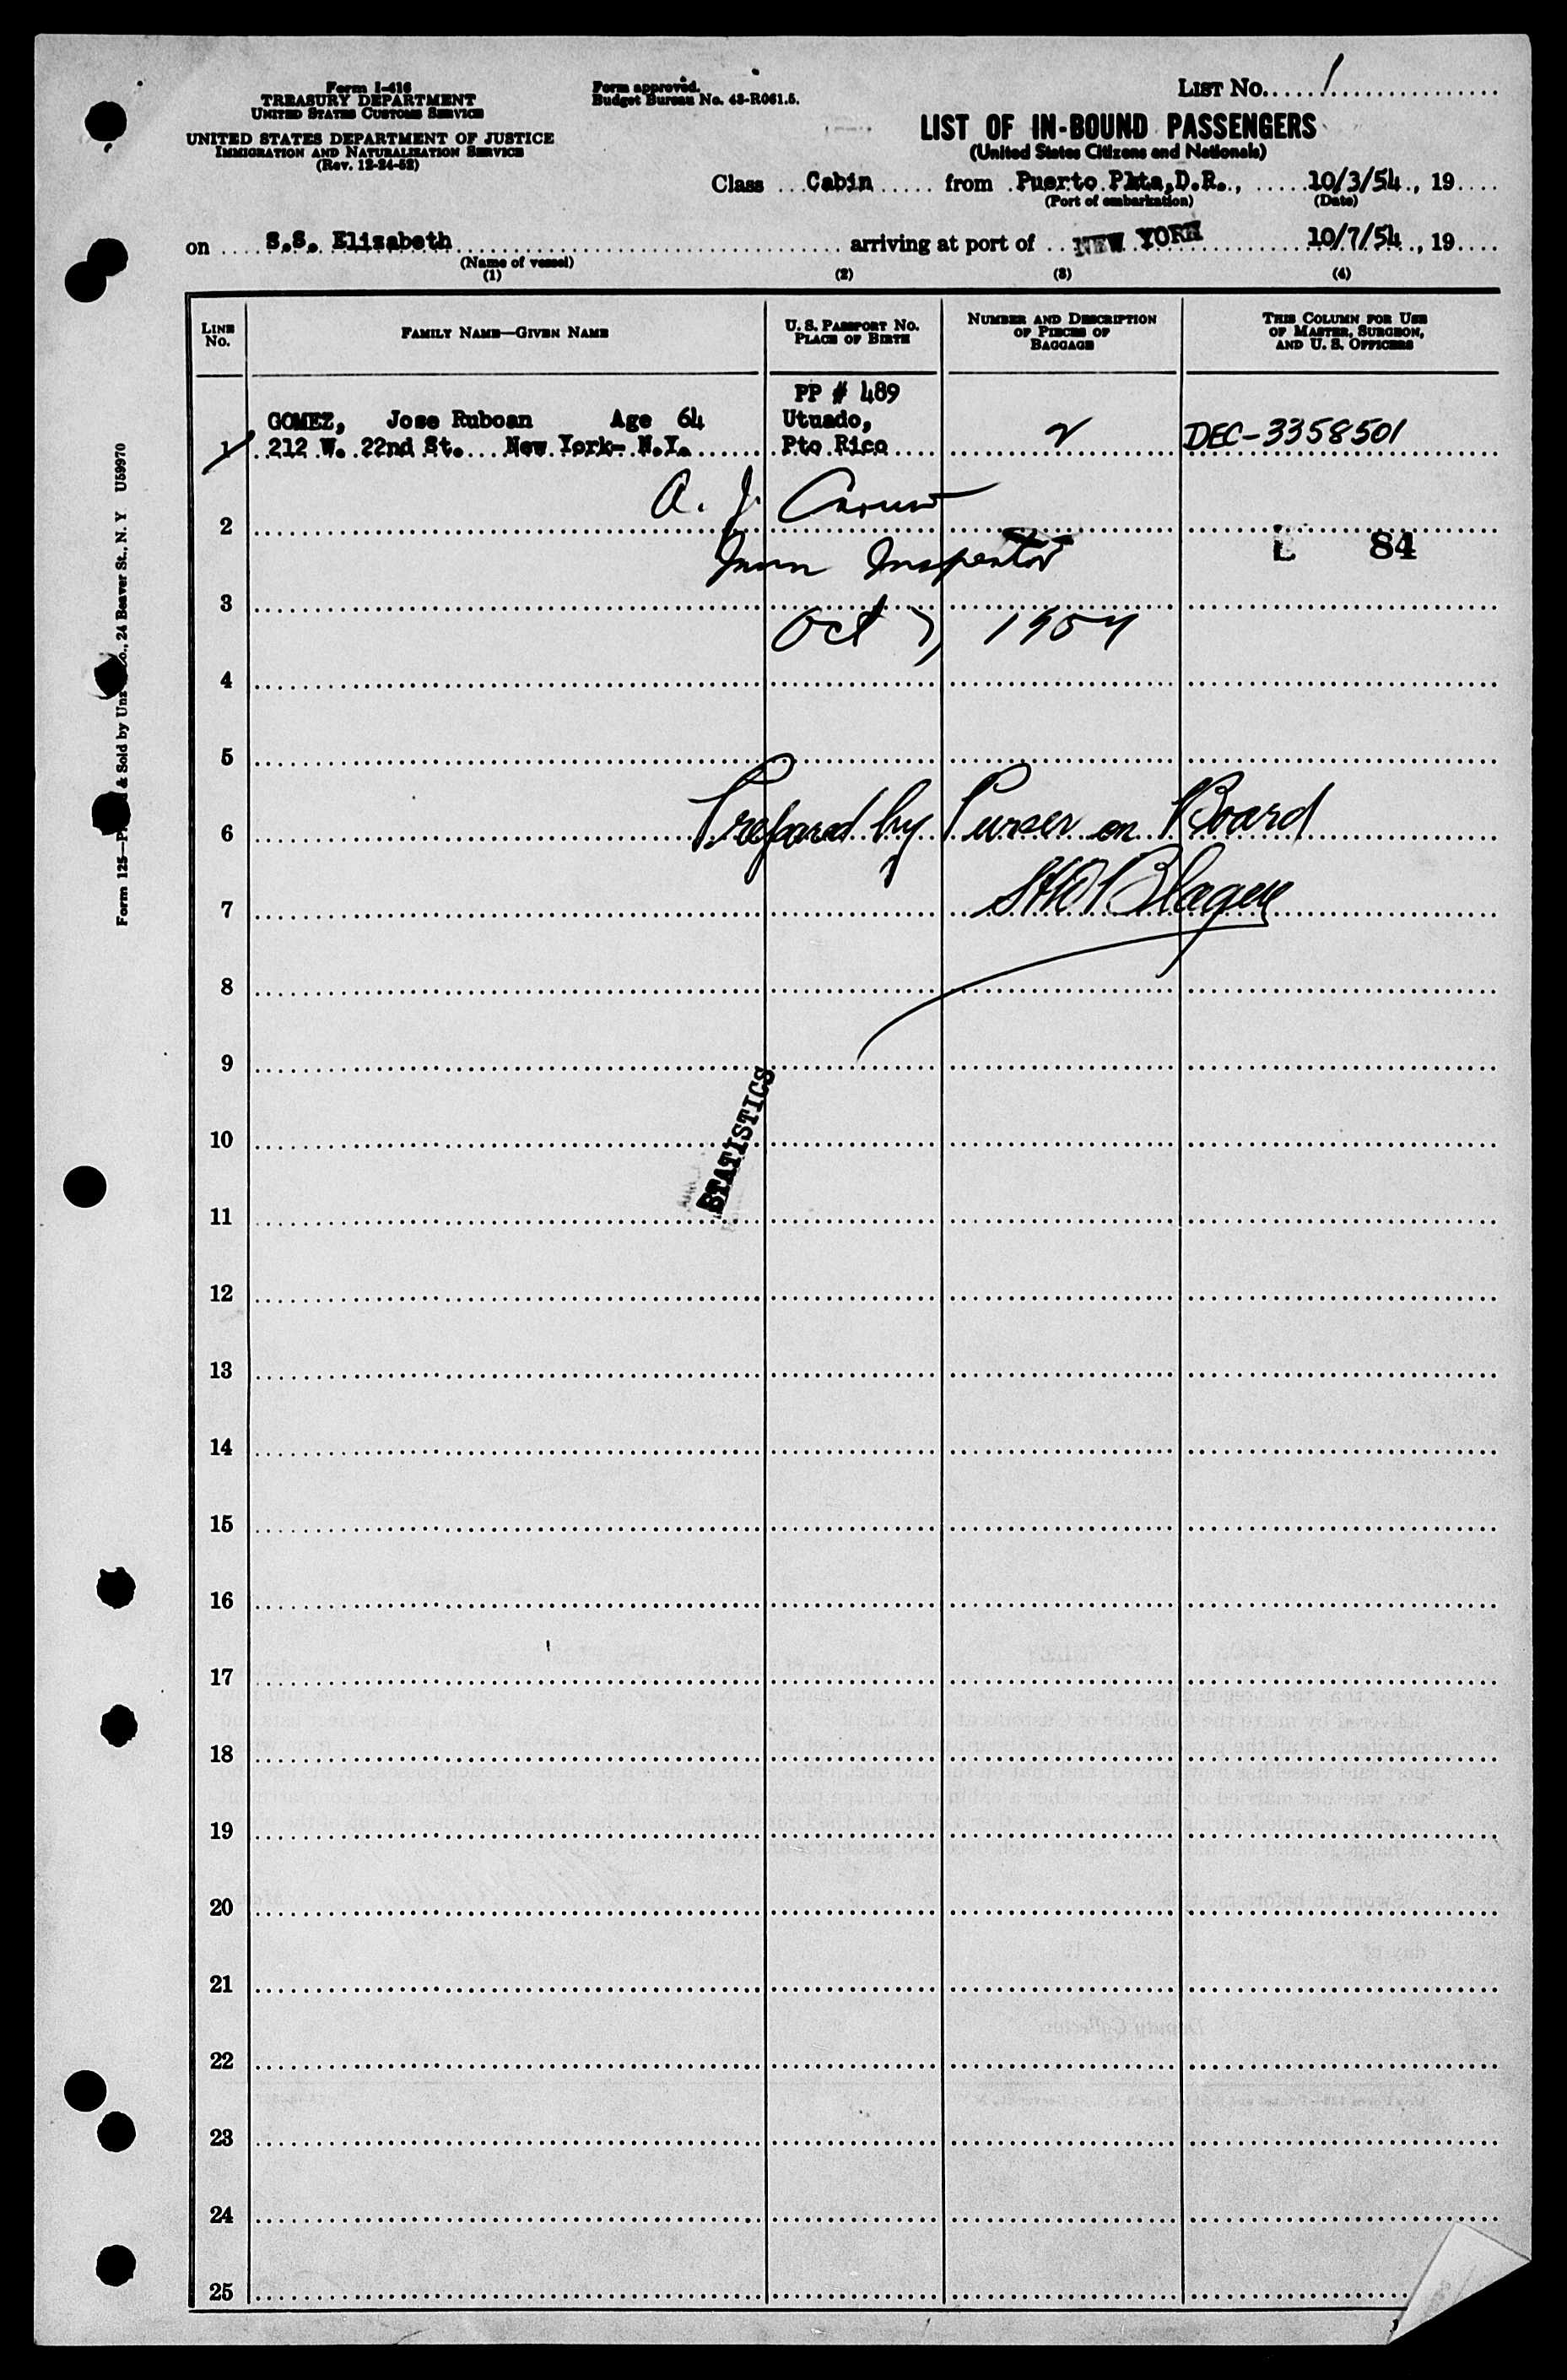 Form I-416
TREASURY DEPARTMENT
UNITED STATES CUSTOMS SERVICE
UNITED STATES DEPARTMENT OF JUSTICE
IMMIGRATION AND NATURALIZATION SERVICE
(Rev. 12-24-52)
Form approved.
Budget Bureau No. 43-R061.5.
LIST No. 1
LIST OF IN-BOUND PASSENGERS
(United States Citizens and Nationals)
Class Cabin from Puerto Plata, D.R., 10/3/54, 19
(Port of embarkation) (Date)
on S.S. Elizabeth arriving at port of NEW YORK 10/7/54, 19
(Name of vessel)
(1) (2) (3) (4)
LINE No. FAMILY NAME—GIVEN NAME U. S. PASSPORT NO. PLACE OF BIRTH NUMBER AND DESCRIPTION OF PIECES OF BAGGAGE THIS COLUMN FOR USE OF MASTER, SURGEON, AND U. S. OFFICERS
PP # 489
GOMEZ, Jose Ruboan Age 64 Utuado,
1 212 W. 22nd St. New York- N.Y. Pto Rico 2 DEC-3358501
A. J. Caruso
2
Imm Inspector
84
3
Oct 7, 1954
4
5
6 Prepared by Purser on Board
7
8
9
STATISTICS
10
11
12
13
14
15
16
17
18
19
20
21
22
23
24
25
Form 125— & Sold by 24 Beaver St., N. Y U59970